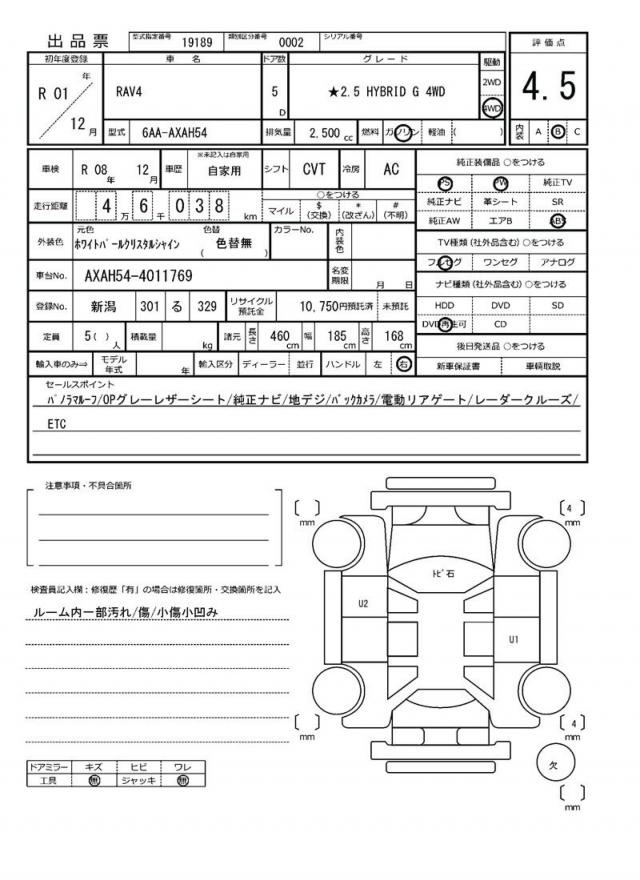 出品票
型式指定番号 19189 類別区分番号 0002 シリアル番号
評価点
4.5
内装 A B C
初年度登録 車名 ドア数 グレード 駆動
R 01 年 12 月
RAV4
5 D
★2.5 HYBRID G 4WD
2WD
4WD
型式 6AA-AXAH54 排気量 2,500 cc 燃料 ガソリン 軽油 ( )
車検 R 08 年 12 月 車歴 ※未記入は自家用 自家用 シフト CVT 冷房 AC
走行距離 4 万 6 千 0 3 8 km
○をつける
マイル $(交換) *(改ざん) #(不明)
外装色 元色 ホワイトパールクリスタルシャイン 色替 ( 色替無 ) カラーNo. 内装色
車台No. AXAH54-4011769 名変期限 月 日
登録No. 新潟 301 る 329 リサイクル預託金 10,750円預託済 未預託
定員 5( ) 人 積載量 kg 諸元 長さ 460 cm 幅 185 cm 高さ 168 cm
輸入車のみ⇒ モデル年式 年 輸入区分 ディーラー 並行 ハンドル 左 右
純正装備品 ○をつける
PS PW 純正TV
純正ナビ 革シート SR
純正AW エアB ABS
TV種類(社外品含む) ○をつける
フルセグ ワンセグ アナログ
ナビ種類(社外品含む) ○をつける
HDD DVD SD
DVD再生可 CD
後日発送品 ○をつける
新車保証書 車輌取説
セールスポイント
パノラマルーフ/OPグレーレザーシート/純正ナビ/地デジ/バックカメラ/電動リアゲート/レーダークルーズ/
ETC
注意事項・不具合箇所
検査員記入欄:修復歴「有」の場合は修復箇所・交換箇所を記入
ルーム内一部汚れ/傷/小傷小凹み
ドアミラー キズ ヒビ ワレ
工具 無 ジャッキ 無
[ ] mm
[ 4 ] mm
トビ石
U2
U1
[ ] mm
[ 4 ] mm
欠
[ ] mm